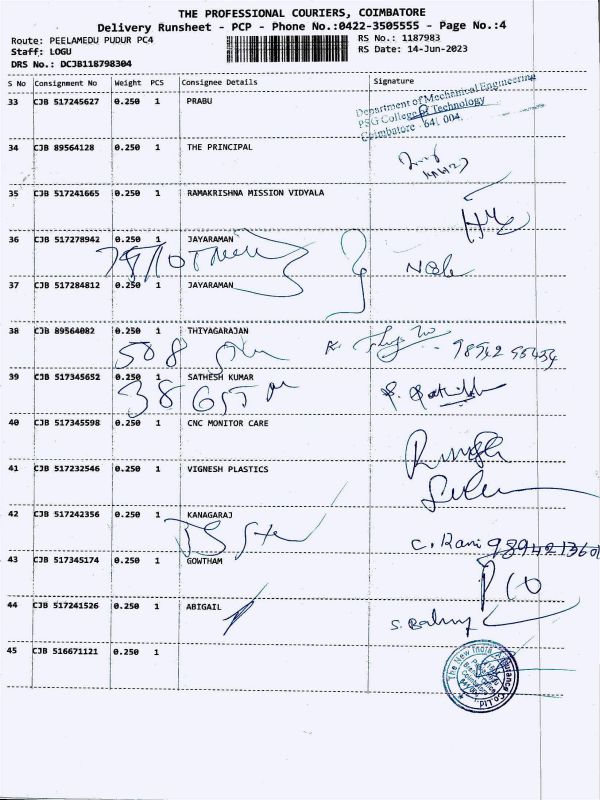 THE PROFESSIONAL COURIERS, COIMBATORE
Delivery Runsheet - PCP - Phone No.:0422-3505555 - Page No.:4
Route: PEELAMEDU PUDUR PC4 RS No.: 1187983
Staff: LOGU RS Date: 14-Jun-2023
DRS No.: DCJB118798304
S No Consignment No Weight PCS Consignee Details Signature
33 CJB 517245627 0.250 1 PRABU
Department of Mechanical Engineering
PSG College of Technology
Coimbatore - 641 004.
34 CJB 89564128 0.250 1 THE PRINCIPAL
35 CJB 517241665 0.250 1 RAMAKRISHNA MISSION VIDYALA
36 CJB 517278942 0.250 1 JAYARAMAN
37 CJB 517284812 0.250 1 JAYARAMAN
38 CJB 89564082 0.250 1 THIYAGARAJAN
508
39 CJB 517345652 0.250 1 SATHESH KUMAR
40 CJB 517345598 0.250 1 CNC MONITOR CARE
41 CJB 517232546 0.250 1 VIGNESH PLASTICS
42 CJB 517242356 0.250 1 KANAGARAJ
C. Rani
43 CJB 517345174 0.250 1 GOWTHAM
44 CJB 517241526 0.250 1 ABIGAIL
45 CJB 516671121 0.250 1
The New India Assurance Co. Ltd.